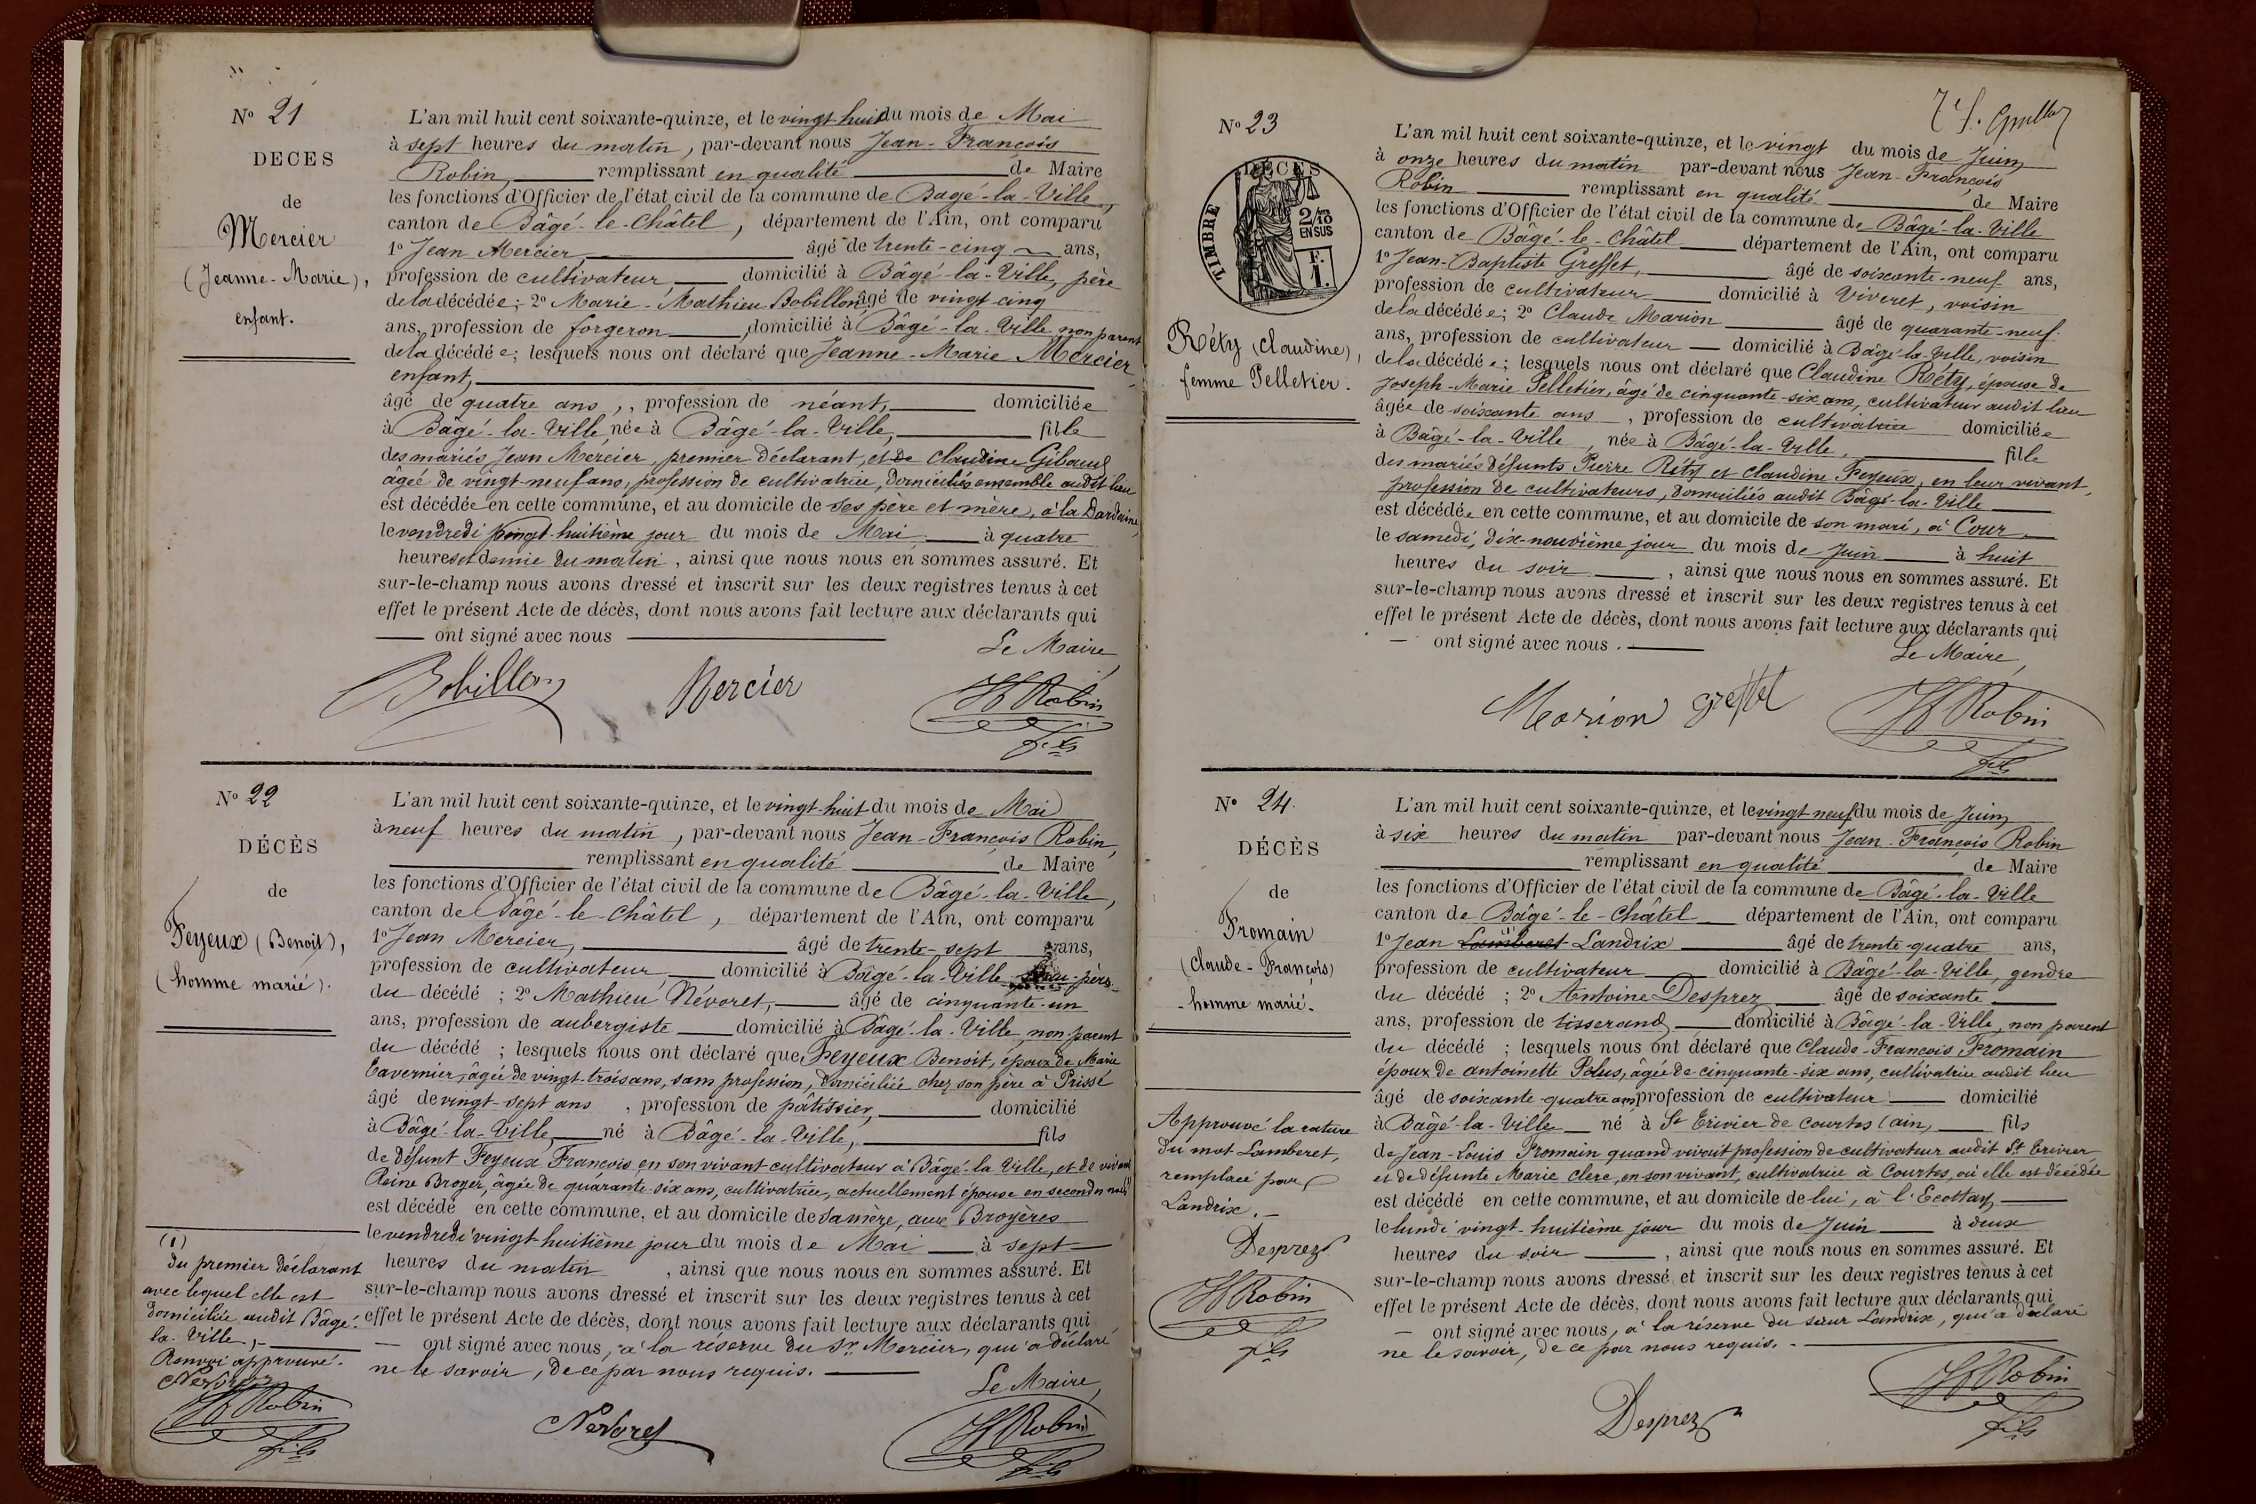 N° 21
DECES
de
Mercier
(Jeanne-Marie),
enfant.
L'an mil huit cent soixante-quinze, et le vingt-huit du mois de Mai
à sept heures du matin, par-devant nous Jean-François
Robin, remplissant en qualité de Maire
les fonctions d'Officier de l'état civil de la commune de Bagé-la-Ville,
canton de Bâgé-le-Châtel, département de l'Ain, ont comparu
1° Jean Mercier, âgé de trente-cinq ans,
profession de cultivateur, domicilié à Bâgé-la-Ville, père
de la décédée; 2° Marie-Mathieu Bobillon, âgé de vingt-cinq
ans, profession de forgeron, domicilié à Bâgé-la-Ville non parent
de la décédée; lesquels nous ont déclaré que Jeanne-Marie Mercier,
enfant,
âgé de quatre ans, profession de néant, domiciliée
à Bâgé-la-Ville née à Bâgé-la-Ville, fille
des mariés Jean Mercier, premier déclarant, et de Claudine Giboud
âgée de vingt-neuf ans, profession de cultivatrice, domiciliés ensemble audit lieu
est décédée en cette commune, et au domicile de ses père et mère, à la
le vendredi vingt-huitième jour du mois de Mai à quatre
heures et demie du matin, ainsi que nous nous en sommes assuré. Et
sur-le-champ nous avons dressé et inscrit sur les deux registres tenus à cet
effet le présent Acte de décès, dont nous avons fait lecture aux déclarants qui
ont signé avec nous
Le Maire,
Bobillon Mercier Jf Robin
fils
N° 22
DÉCÈS
de
Feyeux (Benoit),
(homme marié).
L'an mil huit cent soixante-quinze, et le vingt-huit du mois de Mai
à neuf heures du matin, par-devant nous Jean-François Robin,
remplissant en qualité de Maire
les fonctions d'Officier de l'état civil de la commune de Bâgé-la-Ville,
canton de Bâgé-le-Châtel, département de l'Ain, ont comparu
1° Jean Mercier, âgé de trente-sept ans,
profession de cultivateur, domicilié à Bâgé-la-Ville, beau-père
du décédé; 2° Mathieu Névoret, âgé de cinquante-un
ans, profession de aubergiste domicilié à Bâgé-la-Ville, non parent
du décédé; lesquels nous ont déclaré que Feyeux Benoit, époux de Marie
Tavernier, âgée de vingt-trois ans, sans profession, domiciliée chez son père à Prissé
âgé de vingt-sept ans, profession de pâtissier, domicilié
à Bâgé-la-Ville, né à Bâgé-la-Ville, fils
de défunt Feyeux François en son vivant cultivateur à Bâgé-la Ville, et de vivante
Reine Broyer, âgée de quarante-six ans, cultivatrice, actuellement épouse en secondes noces (1)
est décédé en cette commune, et au domicile de sa mère, aux Broyères
le vendredi vingt-huitième jour du mois de Mai à sept
heures du matin, ainsi que nous nous en sommes assuré. Et
sur-le-champ nous avons dressé et inscrit sur les deux registres tenus à cet
effet le présent Acte de décès, dont nous avons fait lecture aux déclarants qui
ont signé avec nous, à la réserve du Sr Mercier, qui a déclaré
ne le savoir, de ce par nous requis.
Le Maire,
Nevoret Jf Robin
fils
(1)
du premier déclarant
avec lequel elle est
domiciliée audit Bâgé-
la-Ville,
Renvoi approuvé.
Nevoret
Jf Robin
fils
N° 23
DÉCÈS
TIMBRE
2/10
EN SUS
F.
1.
Réty (Claudine),
femme Pelletier.
L'an mil huit cent soixante-quinze, et le vingt du mois de Juin
à onze heures du matin par-devant nous Jean-François
Robin remplissant en qualité de Maire
les fonctions d'Officier de l'état civil de la commune de Bâgé-la-Ville
canton de Bâgé-le-Châtel département de l'Ain, ont comparu
1° Jean-Baptiste Greffet, âgé de soixante-neuf ans,
profession de cultivateur domicilié à Viveret, voisin
de la décédée; 2° Claude Marion âgé de quarante-neuf
ans, profession de cultivateur domicilié à Bâgé-la-Ville, voisin
de la décédée; lesquels nous ont déclaré que Claudine Réty, épouse de
Joseph-Marie Pelletier, âgé de cinquante-six ans, cultivateur audit lieu
âgée de soixante ans, profession de cultivatrice domiciliée
à Bâgé-la-Ville, née à Bâgé-la-Ville, fille
des mariés défunts Pierre Réty et Claudine Feyeux, en leur vivant,
profession de cultivateurs, domiciliés audit Bâgé-la-Ville
est décédée en cette commune, et au domicile de son mari, à Cour
le samedi, dix-neuvième jour du mois de Juin à huit
heures du soir, ainsi que nous nous en sommes assuré. Et
sur-le-champ nous avons dressé et inscrit sur les deux registres tenus à cet
effet le présent Acte de décès, dont nous avons fait lecture aux déclarants qui
ont signé avec nous.
Le Maire,
Marion Greffet Jf Robin
fils
N° 24.
DÉCÈS
de
Fromain
(Claude-François)
homme marié.
L'an mil huit cent soixante-quinze, et le vingt neuf du mois de Juin
à six heures du matin par-devant nous Jean-François Robin
remplissant en qualité de Maire
les fonctions d'Officier de l'état civil de la commune de Bâgé-la-Ville
canton de Bâgé-le-Châtel département de l'Ain, ont comparu
1° Jean Lamberet Landrix âgé de trente-quatre ans,
profession de cultivateur domicilié à Bâgé-la-Ville, gendre
du décédé; 2° Antoine Desprez âgé de soixante
ans, profession de tisserand domicilié à Bâgé-la-Ville, non parent
du décédé; lesquels nous ont déclaré que Claude-François Fromain
époux de antoinette Polus, âgée de cinquante-six ans, cultivatrice audit lieu
âgé de soixante-quatre ans, profession de cultivateur domicilié
à Bâgé-la-Ville né à St Trivier de Courtes (ain) fils
de Jean-Louis Fromain quand vivait profession de cultivateur audit St Trivier
et de défunte Marie Clerc, en son vivant, cultivatrice à Courtes, où elle est décédée
est décédé en cette commune, et au domicile de lui, à l'Ecottay
le lundi vingt-huitième jour du mois de Juin à deux
heures du soir, ainsi que nous nous en sommes assuré. Et
sur-le-champ nous avons dressé et inscrit sur les deux registres tenus à cet
effet le présent Acte de décès, dont nous avons fait lecture aux déclarants qui
ont signé avec nous, à la réserve du sieur Landrix, qui a déclaré
ne le savoir, de ce par nous requis.
Desprez Jf Robin
fils
Approuvé la rature
du mot Lamberet,
remplacé par
Landrix.
Desprez
Jf Robin
fils